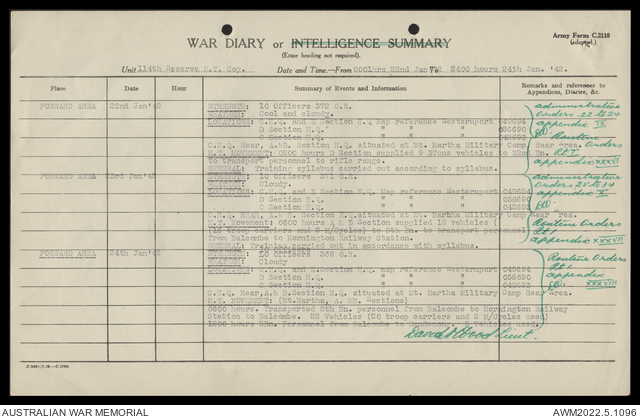 Army Form C.2118
WAR DIARY or INTELLIGENCE SUMMARY
(adapted.)
(Erase heading not required).
Unit 114th Reserve M.T. Coy. Date and Time.—From 0001hrs 22nd Jan '42 To 2400 hours 24th Jan. '42.
Place Date Hour Summary of Events and Information Remarks and references to Appendices, Diaries, &c.
FORWARD AREA 22nd Jan '42 STRENGTH: 10 Officers 372 O.R.
WEATHER: Cool and cloudy.
LOCATION: C.H.Q. and E Section H.Q. Map reference Westernport 049694
D Section H.Q. " " " 056690
C Section H.Q. " " " 042693
C.H.Q. REAR, A.&B. Section H.Q. situated at Mt. Martha Military Camp Rear Area.
M.T. MOVEMENT: 0800 hours D Section supplied 9 3Tons vehicles to Bn.
to transport personnel to rifle range.
GENERAL: Training syllabus carried out according to syllabus.
administrative
orders 22 to 24
appendix IX
Routine
Orders
Pt I
appendix XXXVI
FORWARD AREA 23rd Jan '42 STRENGTH: 10 Officers 371 O.R.
WEATHER: Cloudy.
LOCATION: C.H.Q. and E Section H.Q. Map reference Westernport 049694
D Section H.Q. " " " 056690
C Section H.Q. " " " 042693
C.H.Q. REAR, A.& B. Section H.Q. situated at Mt. Martha Military Camp Rear Area.
M.T. movement: 0800 hours A & B Section supplied 18 vehicles (
(16 troop carriers and 2 M/Cycles) to 8th Bn. to transport personnel
from Balcombe to Mornington Railway Station.
GENERAL: Training carried out in accordance with syllabus.
administrative
orders 25 to 34
appendix X
Routine Orders
Pt I
appendix XXXVII
FORWARD AREA 24th Jan '42 STRENGTH: 10 Officers 369 O.R.
WEATHER: Cloudy
LOCATION: C.H.Q. and E Section H.Q. Map reference Westernport 049694
D Section H.Q. " " " 056690
C Section H.Q. " " " 042693
C.H.Q. Rear, A.& B. Section H.Q. situated at Mt. Martha Military Camp Rear Area.
M.T. MOVEMENT: (Mt.Martha, A. &B. Sections)
0800 hours. Transported 8th Bn. personnel from Balcombe to Mornington Railway
Station to Balcombe. 22 Vehicles (20 troop carriers and 2 M/Cycles used)
Personnel from Balcombe to Vehicles used
Routine Orders
Pt I
appendix
XXXVIII
David Wood Lieut.
AUSTRALIAN WAR MEMORIAL AWM2022.5.1096